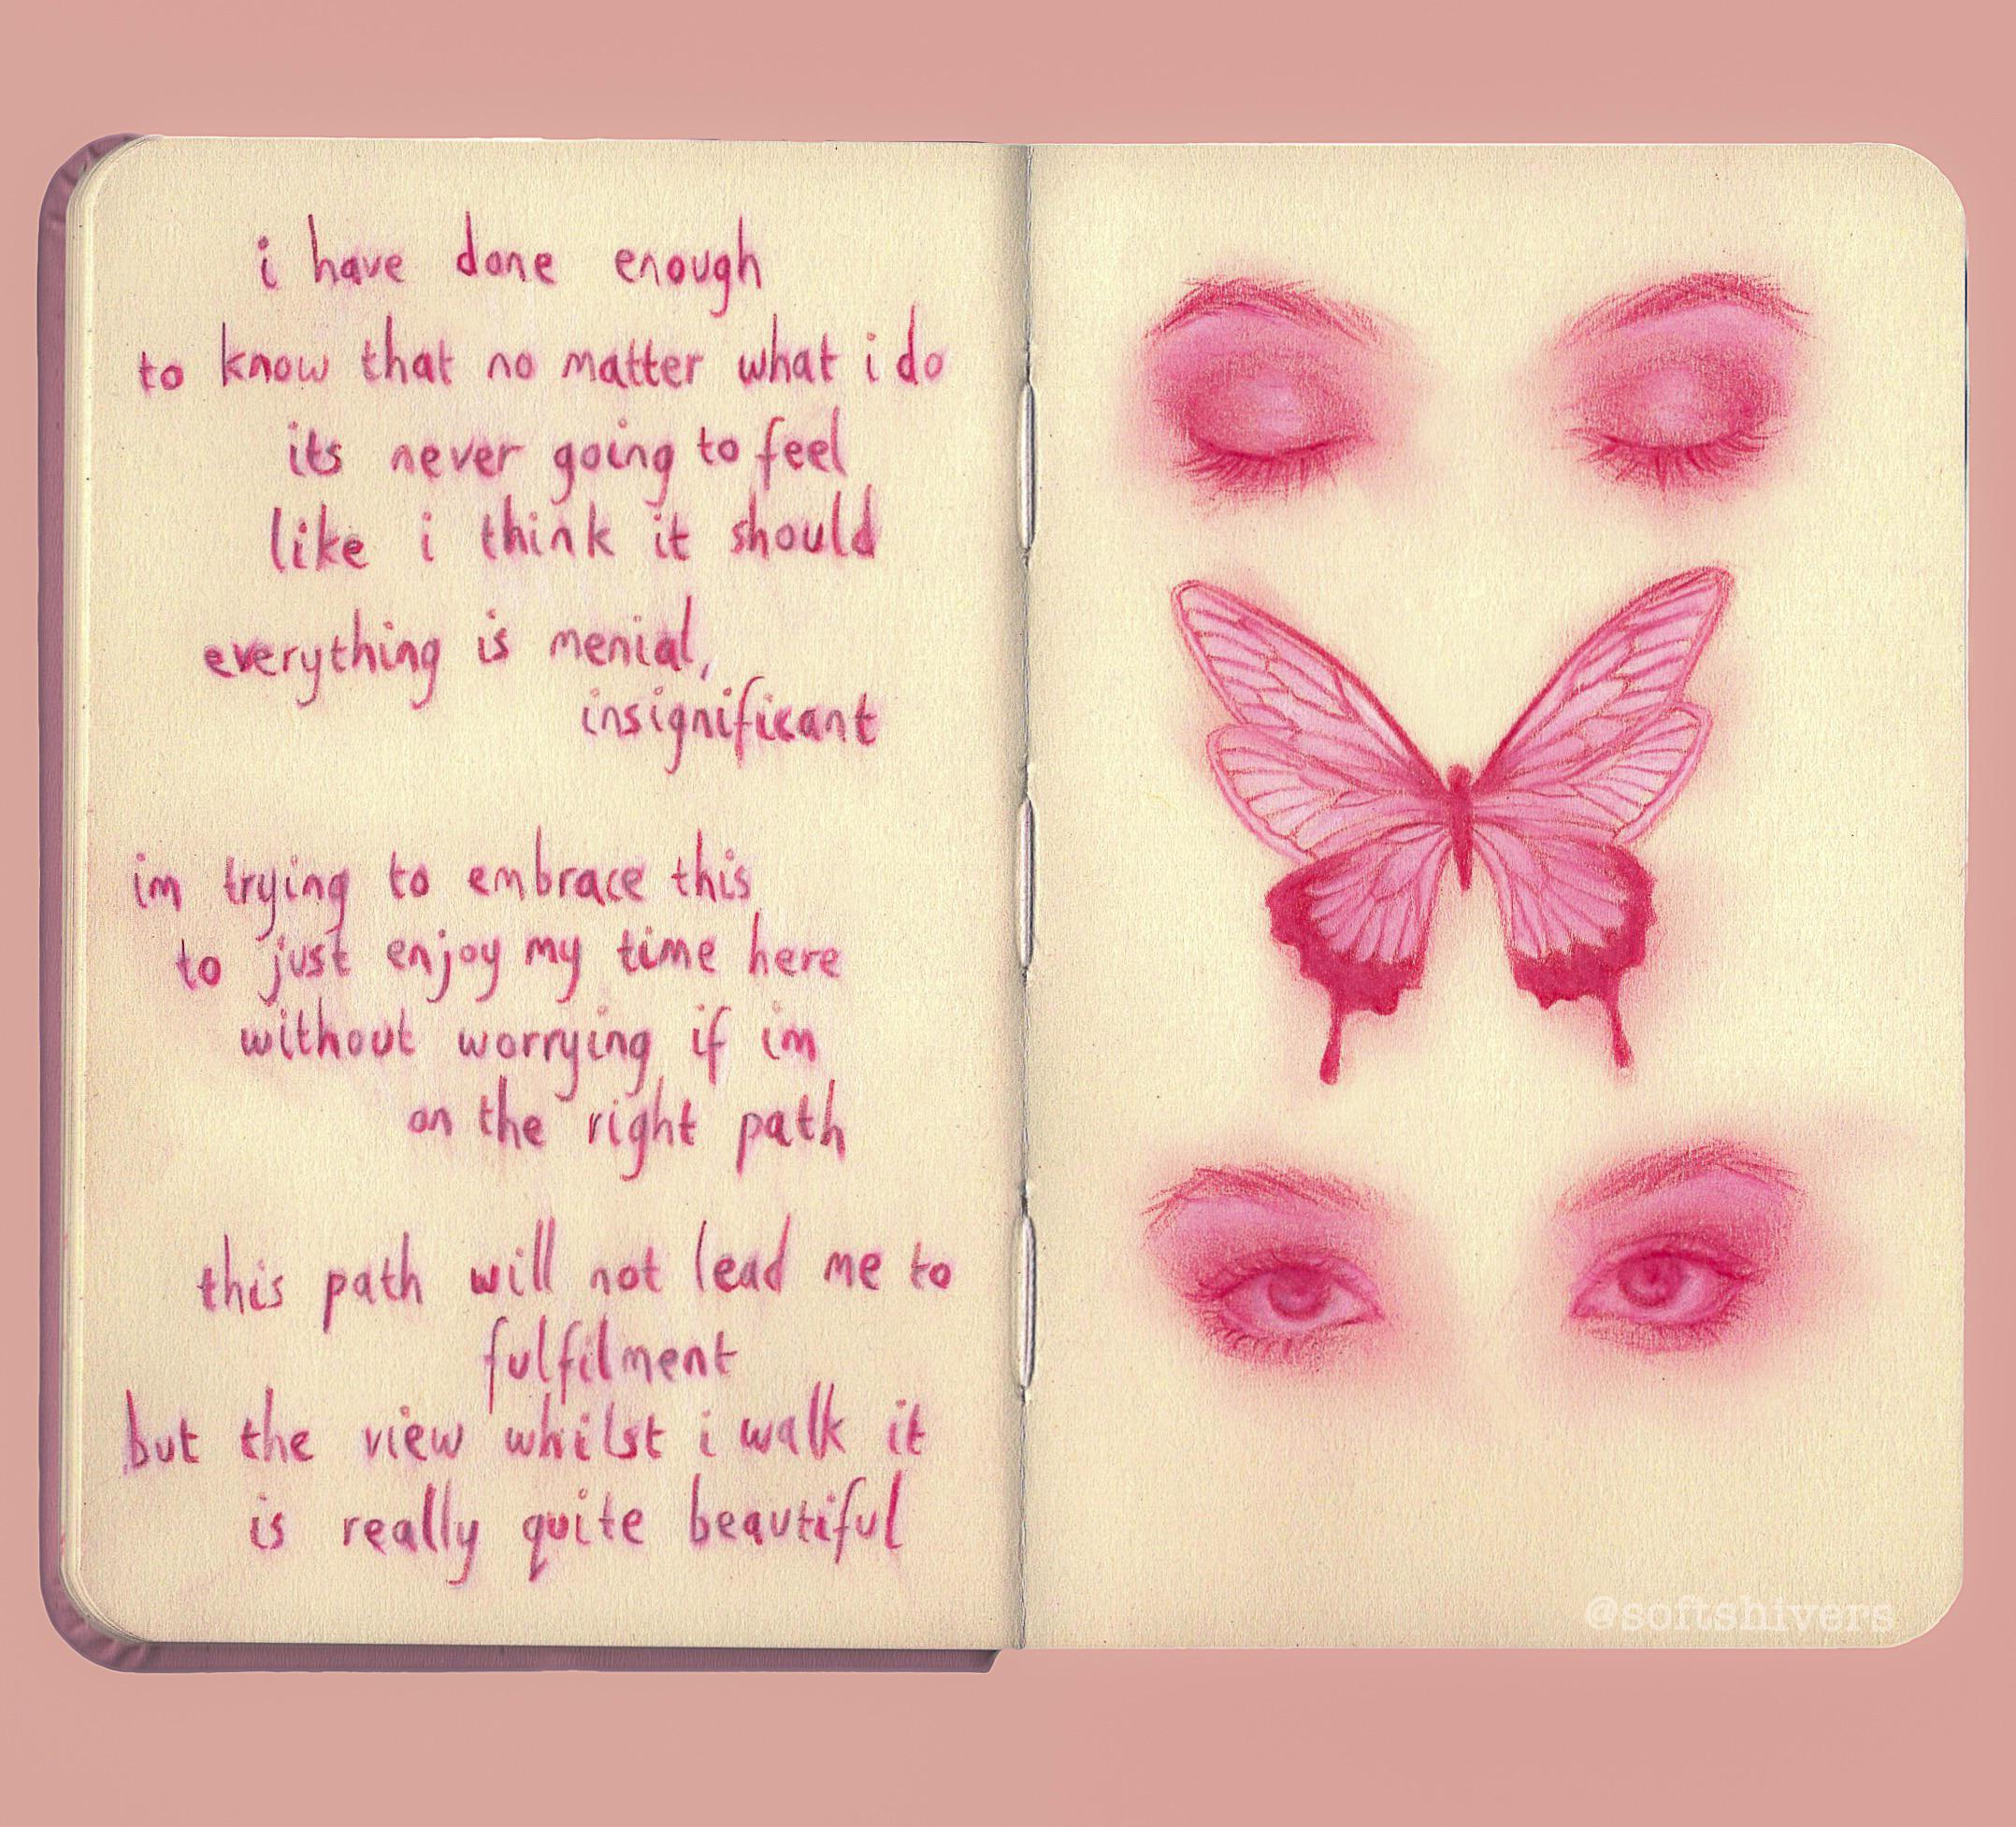 i have done enough
to know that no matter what i do
its never going to feel
like i think it should
everything is menial,
insignificant
im trying to embrace this
to just enjoy my time here
without worrying if im
on the right path
this path will not lead me to
fulfilment
but the view whilst i walk it
is really quite beautiful
@softshivers